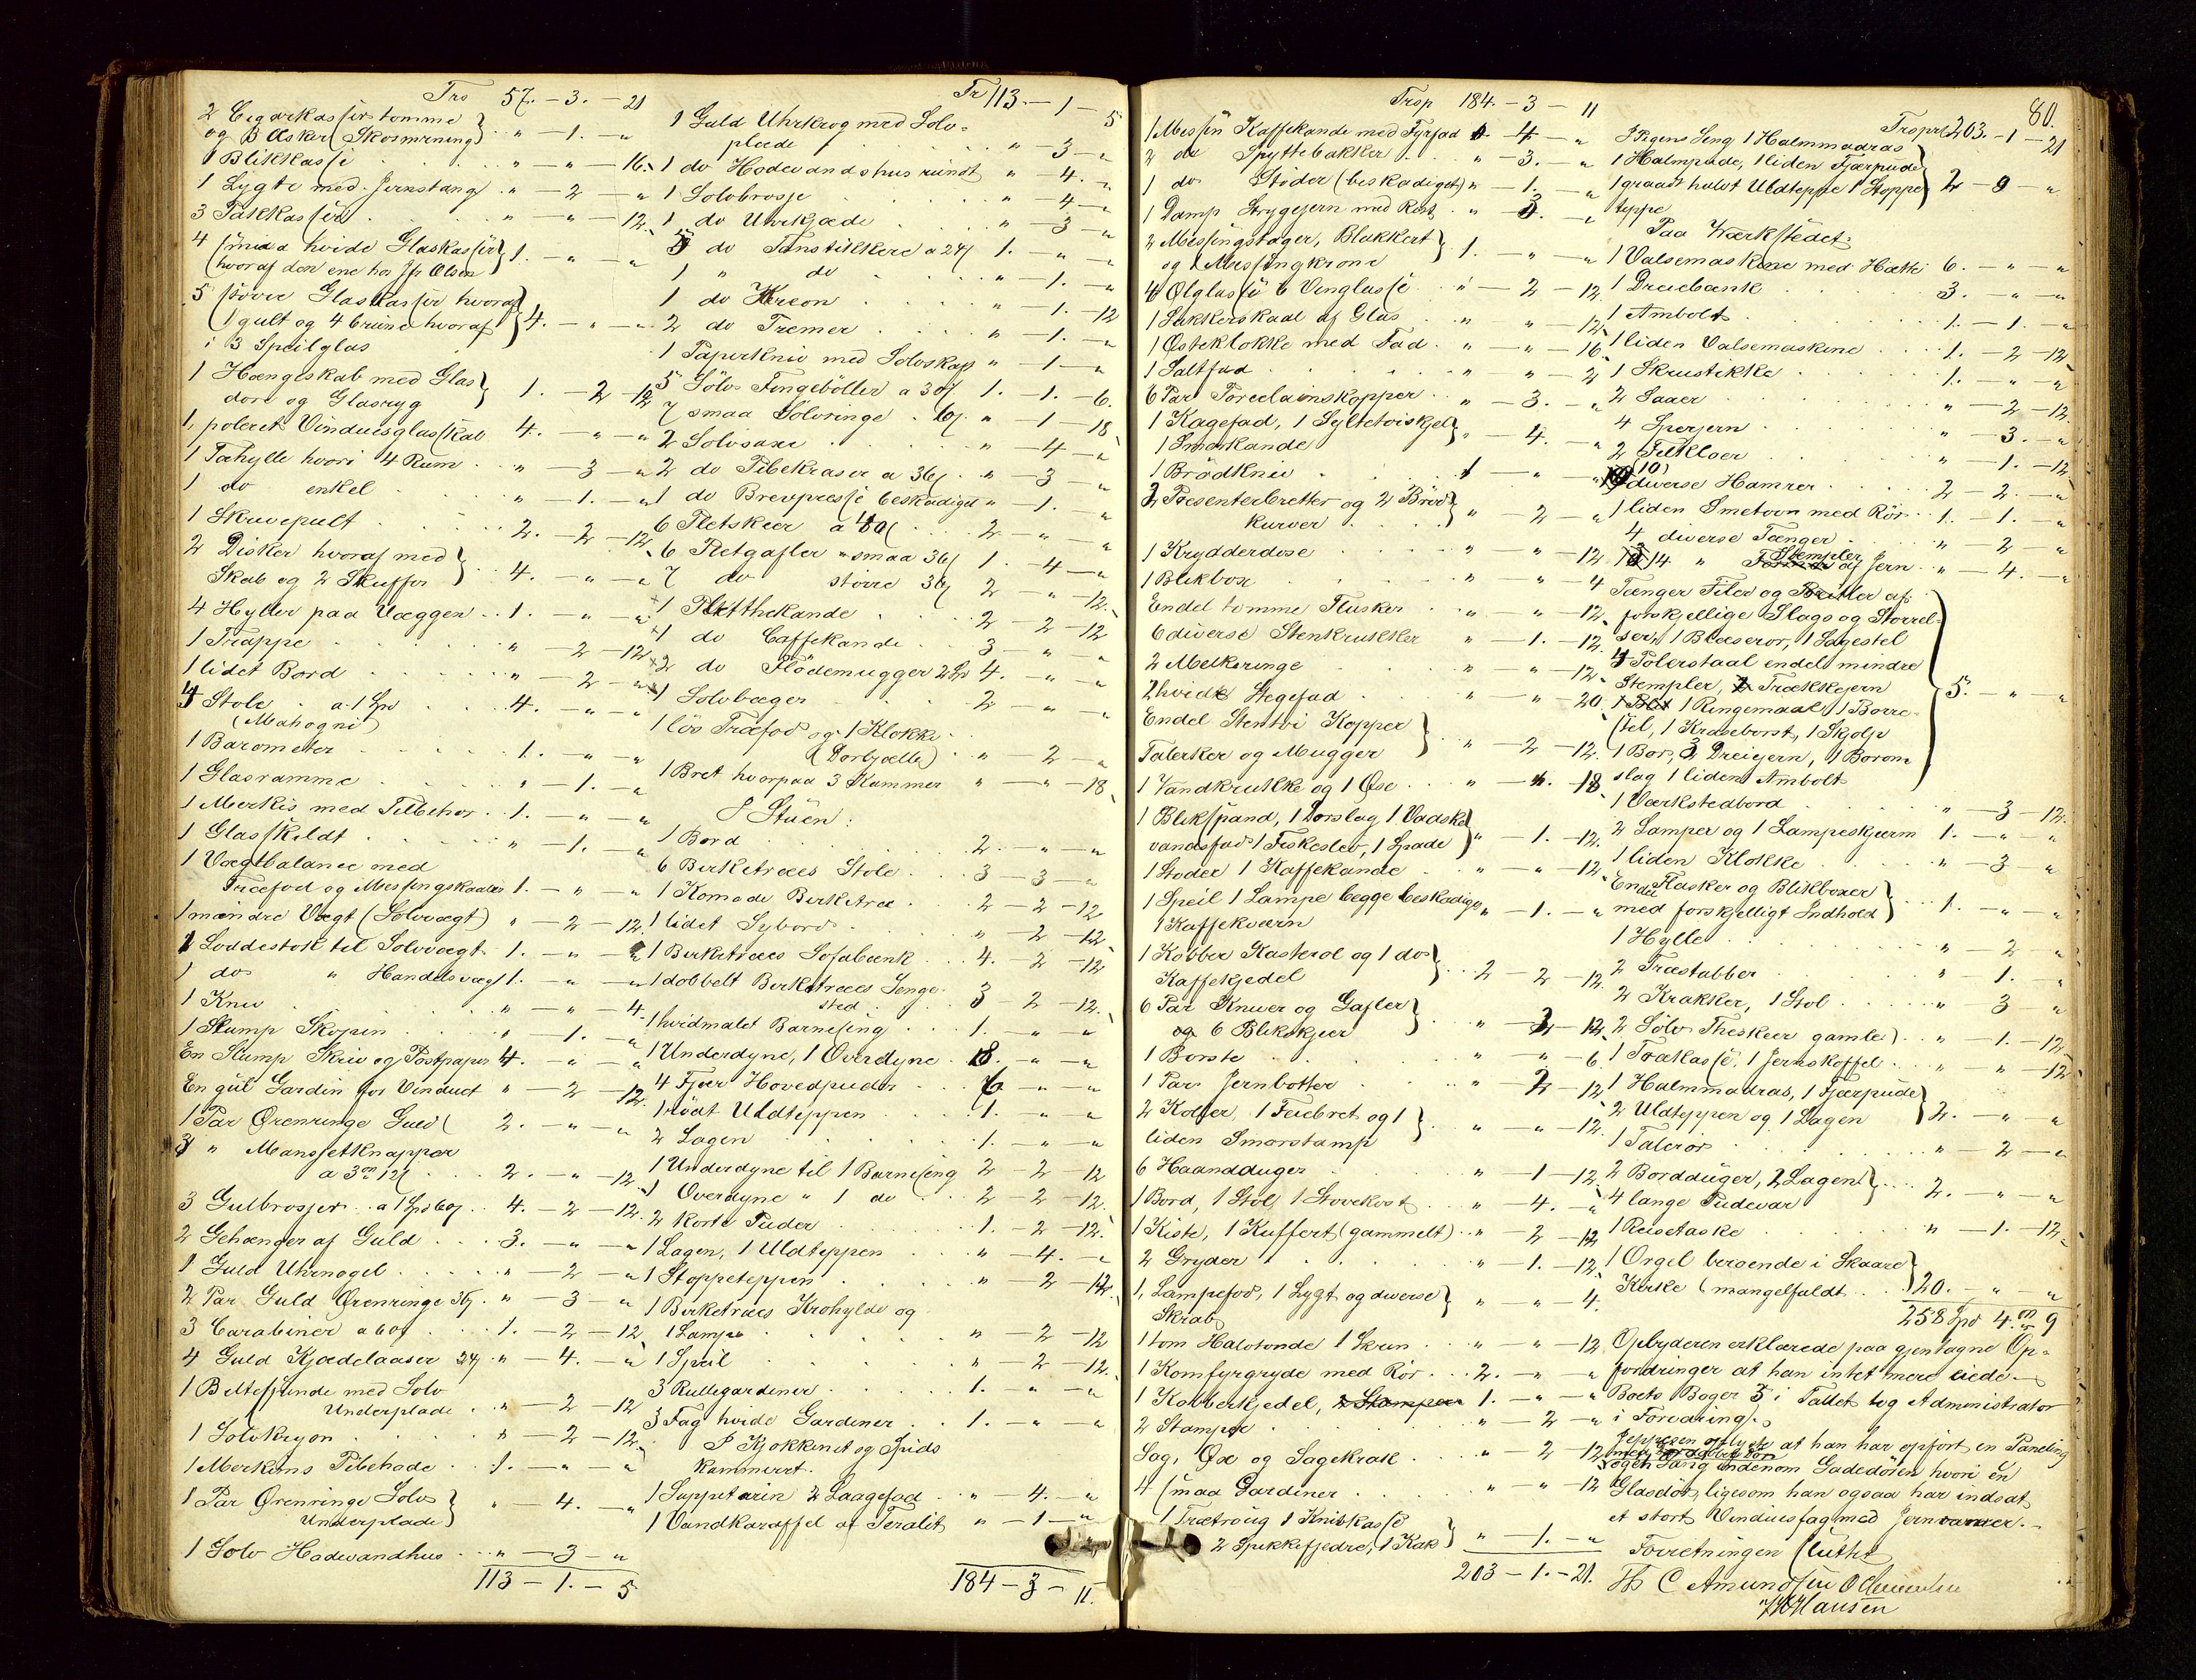 Trs 57. - 3. - 21
2 Cigarkasser tomme
og 3 Æsker (Skosmerning) " - 1. - "
1 Blikkasse " - " - 16.
1 Lygte med Jernstang " - 2 - "
3 Pakkasser " - " - 12.
4 smaa hvide Glaskasser
hvoraf den ene hos Jfr Olsen 1. - " - "
5 større Glaskasser hvoraf
1 gult og 4 brune hvoraf 4. - " - "
i 3 Speilglas
1 Hængeskab med Glas
dore og Glasryg 1. - 2 - 12
1 poleret Vinduesglasskab 4. - " - "
1 Tæhylle hvori 4 Rum " - 3 - "
1 do enkel " - 1. - "
1 Skrivepult 2. - 2 - 12
2 Disker hvoraf med
Skab og 2 Skuffer 4. - " - "
4 Hyller paa Væggen 1. - " - "
1 Trappe " - 2 - 12
1 lidet Bord " - 2 - "
4 Stole a 1 Spd 4. - " - "
(Mahogni)
1 Barometer 1. - " - "
1 Glasramme " - 1. - "
1 Merkis med Tilbehør 1. - " - "
1 Glasskildt " - 1. - "
1 Vægtbalance med
Træfod og Messingskaaler 1. - " - "
1 mindre Vægt (Solvvægt) " - 2 - 12.
1 Loddestok til Solvvægt 1. - " - "
1 do " Handelsvægt 1. - " - "
1 Kniv " - " - 4
1 Stump Skopin " - 1. - "
En Stump Skriv og Postpapir 4. - " - "
En gul Gardin for Vinduet " - 2 - 12
1 Par Ørenringe Guld 2. - " - "
3 " Manssetknapper
a 3 ort 12 s 2. - " - 12
3 Gulbrosjer a 1 Spd 60 s 4. - 2 - 12
2 Gehænger af Guld 3. - " - "
1 Guld Uhrnøgel " - 2 - "
2 Par Guld Ørenringe 36 s " - 3 - "
3 Carabiner a 60 s 1. - 2 - 12
4 Guld Kjædelaaser 24 s " - 4. - "
1 Beltespænde med Solv
Underplade " - 2 - 12
1 Solvkryon " - 2 - 12.
1 Merkums Pibehode 1. - " - "
1 Par Ørenringe Solv
Underplade " 4. - "
1 Solv Hodevandhus " - 3 - "
113 - 1. - 5
Tr 113. - 1 - 5
1 Guld Uhrkrog med Solv=
plade " - 3 - "
1 do Hodevandshus rundt " - 4. - "
1 Solvbrosje " - 4 - "
1 do Uhrkjæde " - 3 - "
5 do Tanstikkere a 24 s 1. - " - "
1 " do " - 1. - "
1 do Kreon " 1. - 12
2 do Fremer " - 1. - "
1 Papirkniv med Solvskap " 1 - "
5 Sölv Fingeböller a 30 s 1. - 1. - 6.
7 smaa Sölvringe " - 1 - 18
2 Solvsaxe " - 4 - "
2 do Pibekraser a 36 s " - 3 - "
1 do Brevpresse beskadiget " - 1. - "
6 Pletskeer a 40 s 2 - " - "
6 Pletgafler " smaa 36 s 1. - 4 - "
7 do større 36 s 2 - " - 12.
1 Pletthekande 2 - 2 - 12
1 do Caffekande 3 - " - "
2 do Flödemugger 2 Spd 4. - " - "
1 Solvbæger 2 - " - "
1 lös Træfod og 1 Klokke
(Dorbjælle) " 2 - "
1 Bret hvorpaa 3 Kammer " - " - 18
I Stuen:
1 Bord 2. - " - "
6 Birketræes Stole 3 - 3 - "
1 Komode Birketræ 2 - 2 - 12
1 lidet Sybord " - 2 - 12
1 Birketræes Sofabænk 4. - 2 - 12
1 dobbelt Birketræes Senge-
sted 3 - 2 - 12.
1 hvidmalet Barneseng 1. - " - "
1 Underdyne, 1 Overdyne 8. - " - "
4 Fjær Hovedpuder 6 - " - "
1 rødt Uldteppen 1. - " - "
2 Lagen 1. - " - "
1 Underdyne til 1 Barneseng 2 - 2 12
1 Overdyne " 1 do 2 - 2 - 12.
2 korte Puder 1. - 2 - 12.
1 Lagen, 1 Uldteppen " - 4. - "
1 Stoppeteppen " - 2 - 12.
1 Birketræes Krohylde og
1 Lampe " - 2 - 12
1 Speil " - 2 - 12.
3 Rullegardiner 1. - " - "
3 Fag hvide Gardiner 1. - " - "
I Kjøkkenet og Spids
kammeret.
1 Suppetarin 2 Laagefad " - 4. - "
1 Vandkaraffel af Feralit " - 1 - "
184 - 3 - 11.
80.
Trsp 184. - 3 - 11
1 Messin Kaffekande med Fyrfad " 4 - "
2 do Spyttebakker " - 3. - "
1 do Støder (beskadiget) " - 1. - "
1 Damp Strygejern med Rist " - 3. - "
2 Messingstager, Blakkert
og 1 Messingkrone 1. - " - "
4 Olglasse 6 Vinglasse " - 2 - 12.
1 Sukkerskaal af Glas " " - 12.
1 Osteklokke med Fad " - " - 16
1 Saltfad " " - 2
6 Par Porcelainskopper " - 3. - "
1 Kagefad, 1 Syltetøiskjel
1 Smørkande " - 4. - "
1 Brödkniv 1 - " - "
2 Presenterbretter og 2 Bröd
kurver " - 2 - "
1 Krydderdose " - " - 12
1 Blikboxe " " - 4
Endel tomme Flasker " - " - 12.
6 diverse Stenkrukker " - 1. - 12
2 Melkeringe " " - 12
2 hvide Stegefad " - " - 20.
Endel Stentøi Kopper
Talerker og Mugger " - 2 - 12.
1 Vandkrukke og 1 Øse " - ". - 18
1 Blikspand, 1 Dorslag 1 Vadske
vandsfad 1 Fiskeslev, 1 Spade " - 1. - 12.
1 Støder 1 Kaffekande " - " - 12
1 Speil 1 Lampe begge beskadiget
1 Kaffekværn " - 1. - "
1 Kobber Kasterol og 1 do
Kaffekjedel 2 - 2 - 12.
6 Par Kniver og Gafler
og 6 Blikskjeer " - 2 - 12
1 Borste " - " - 6
1 Par Jernbotter " 2 - 12
2 Kofter, 1 Feiebret og 1
liden Smørstamp " - " - 12.
6 Haandduger " - 1 - 12
1 Bord, 1 Stol 1 Stovekost " - 4. - "
1 Kiste, 1 Kuffert (gammelt) " - 2 - 12
2 Gryder " - 1. - 12
1 Lampefod, 1 Lygt og diverse
Skrab " - " - 4.
1 tom Halvtønde 1 Skrin " " - 12
1 Komfyrgryde med Rör 2. - " - "
1 Kobberkjedel, 1. - " - "
2 Stampe " - 2 - "
Sag, Øxe og Sagekrak " - 2 - 12
4 smaa Gardiner " - " - 12
1 Trætroug 1 Knivkasse
2 Spekkefjedre, 1 Kak " - 1. - "
203 - 1. - 21.
Trsprt 203. - 1 - 21
I Pigens Seng 1 Halmmadras
1 Halmpude, 1 liden Fjærpude
1 graat halvt Uldteppe 1 Stoppe 2 - 0 - "
teppe
Paa Værkstedet:
1 Valsemaskine med Hætte 6. - " - "
1 Dreiebænk 3. - " - "
1 Ambolt 1. - 1. - "
1 liden Valsemaskine 1. - 2 - 12
1 Skrustikke 1. - " - "
2 Saxer " - 2 - 12.
4 Sperjern " - 3. - "
2 Filkloer " - 1. - 12
(10) diverse Hamrer 2 - 2. - "
1 liden Smeteovn med Rör 1. - 1. - "
4 diverse Tænger " - 2 - "
14 " Stempler af Jern " - 4. - "
Tænger Filer og af
forskjellige Slags og Størrel-
ser, 1 Blæserør, 1 Sagestel
4 Polerstaal endel mindre
Stempler, 2 Trækkejern 5. - " - "
1 Ringemaal, 1 Borre-
stel, 1 Kraseborst, 1 Skjolp
1 Bor, 3 Dreiejern, 1 Borom
slag 1 liden Ambolt
1 Værkstedbord " - 3 - 12.
2 Lamper og 1 Lampeskjærm 1. - " - "
1 liden Klokke " - 3 - "
Endel Flasker og Blikboxer
med forskjelligt Indhold 1. - " - "
1 Hylle " - 2 - "
2 Træstabber " - 1. - "
2 Krakker, 1 Stol " 3 - "
2 Sölv Theskeer gamle " - 1. - 12
1 Trækasse, 1 Jernskoffel " - " - 12
1 Halmmadras, 1 Fjærpude
2 Uldteppen og 1 Lagen 2. - " - "
1 Talerør " - 2 - "
2 Bordduger, 2 Lagen
4 lange Pudevar 2. - " - "
1 Reisetaske " - 1. - 12
1 Orgel beroende i Skaare
Kirke (mangelfuldt 20. - " - "
258 Spd 4 ort 9
Opbyderen erklærede paa gjentagne Op=
fordringer at han intet mere eiede.
Boets Bøger 5 i Tallet tog Administrator
i Forvaring.
Jeppesen oplyste at han har opfört en Paneling
Gang indenom Gadedören hvori en
Glasdör, ligesom han ogsaa har indsat
et stort Vinduesfag med Jernrammer.
Forretningen sluttet
Th C Amundsen O Clausen
H Hansen